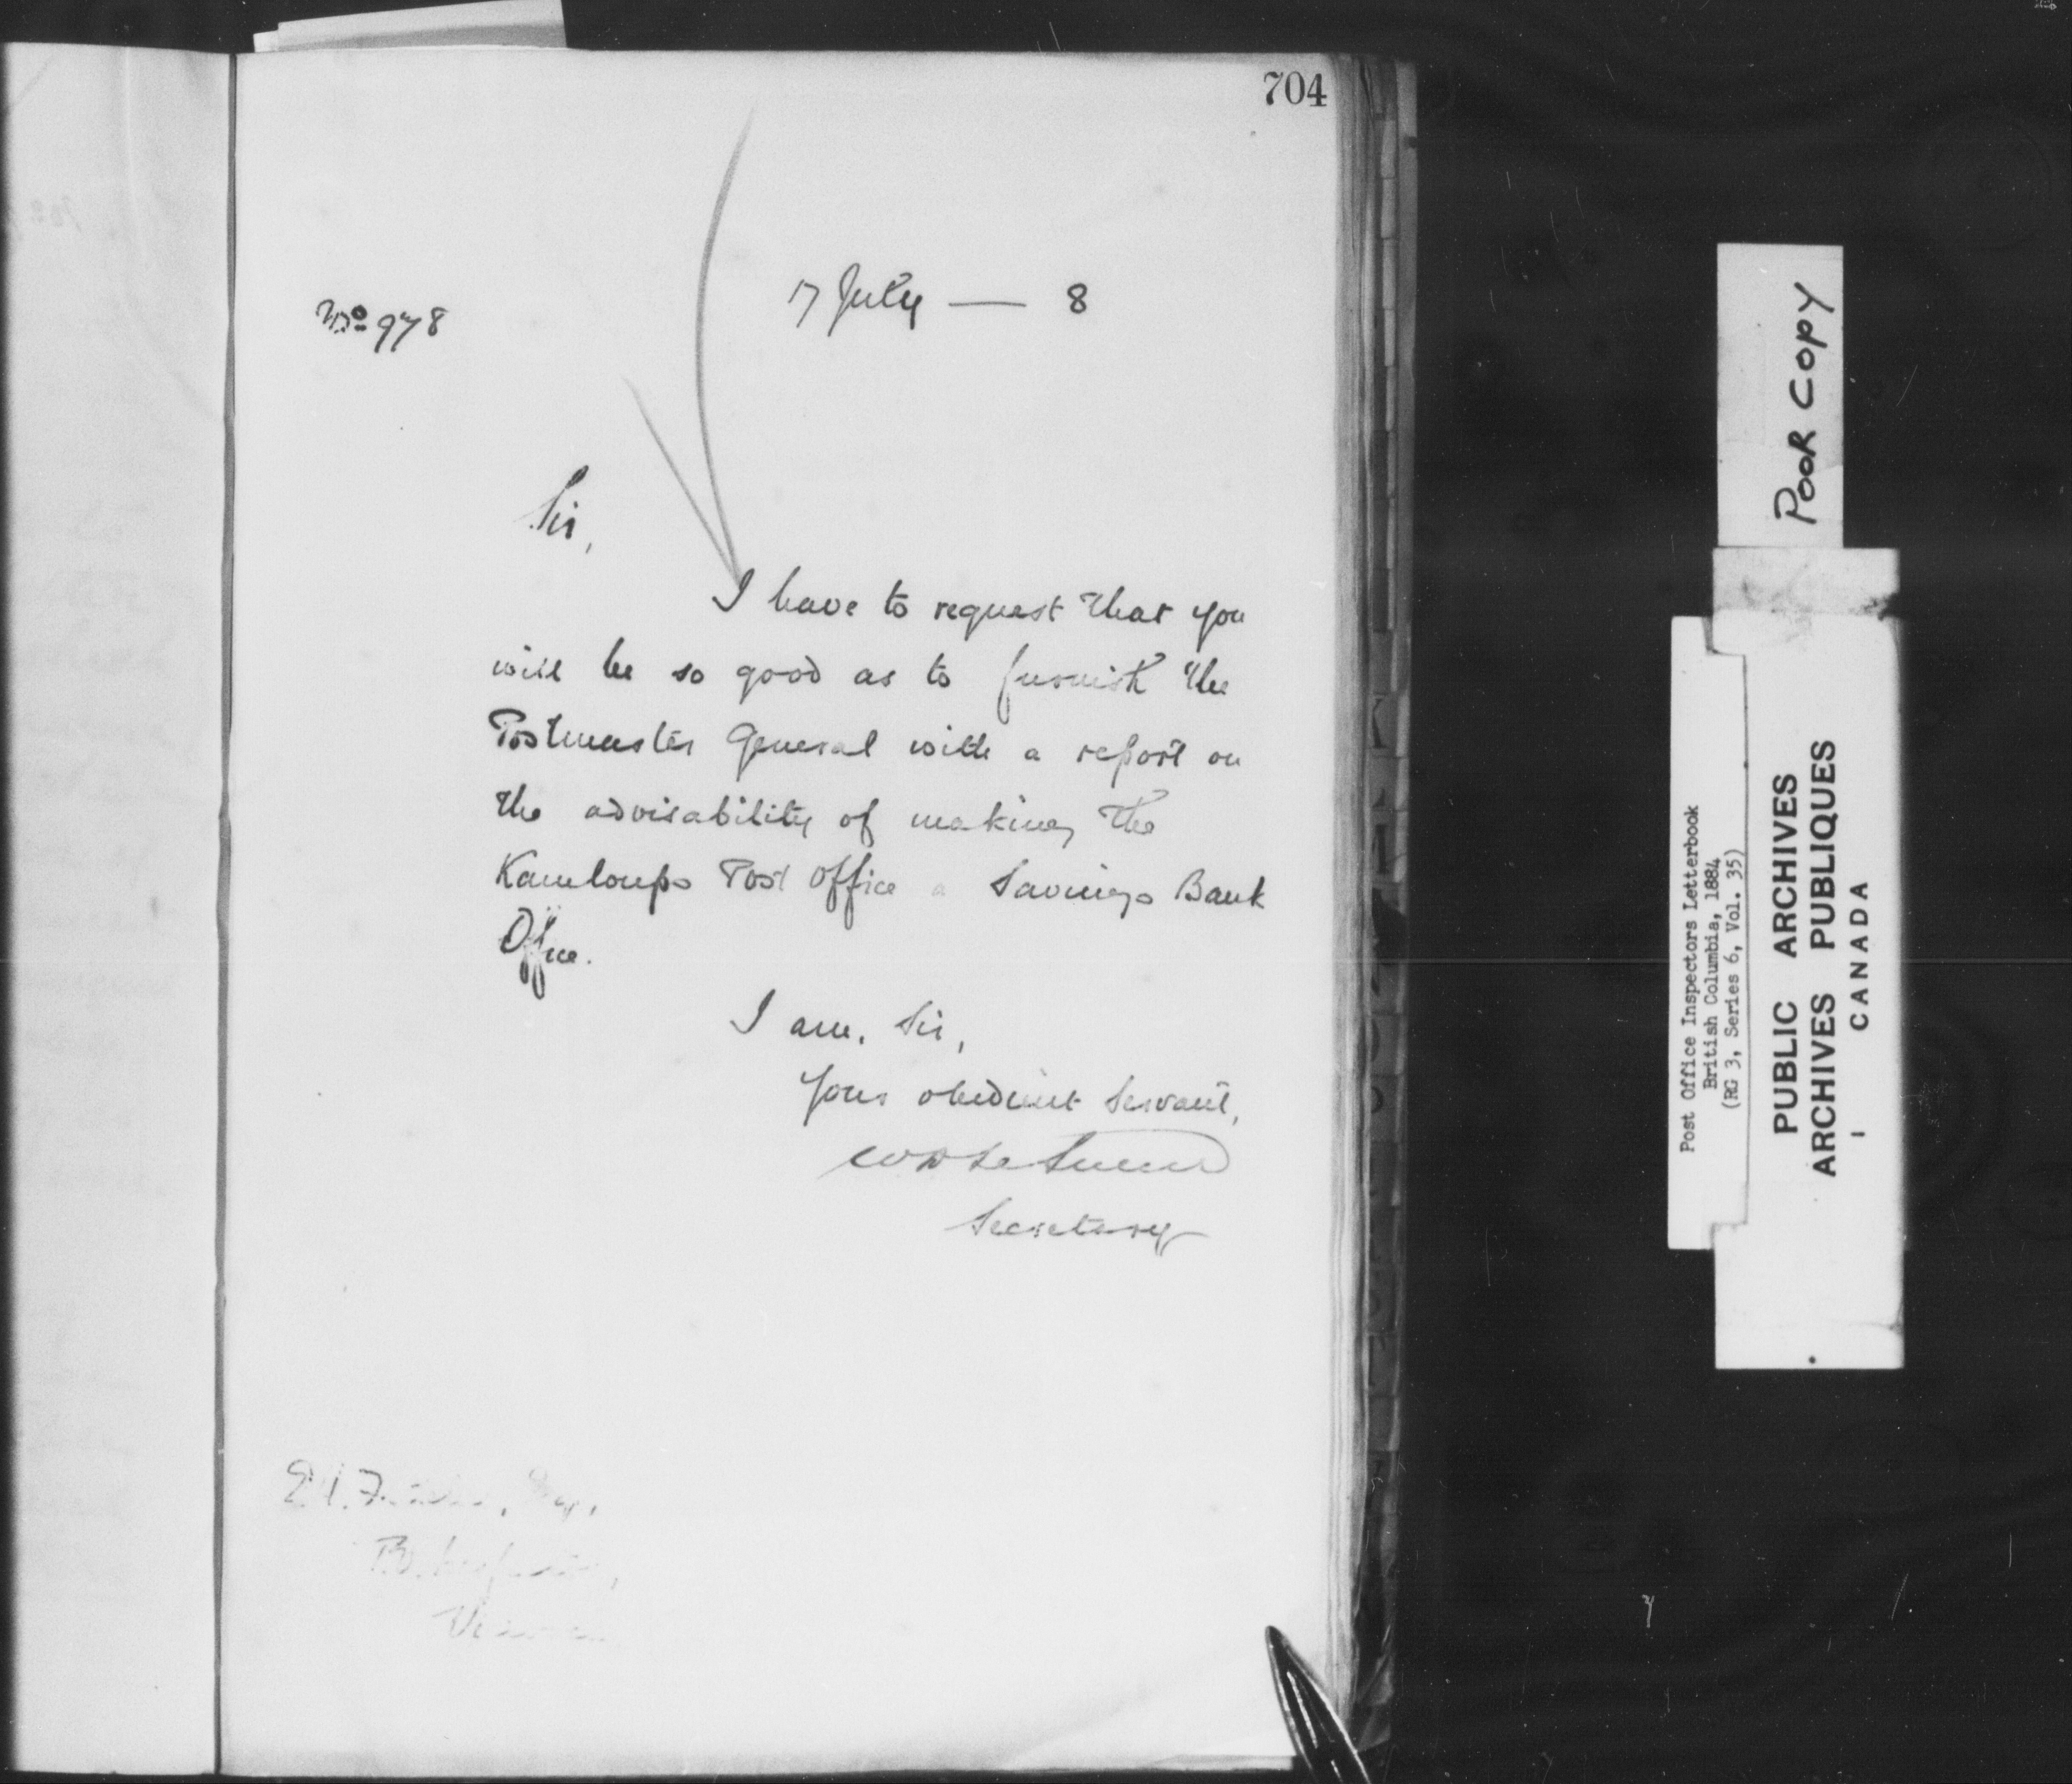 704
17 July — 8
No 978
Sir,
I have to request that you
will be so good as to furnish the
Postmaster General with a report on
the advisability of making the
Kamloops Post Office a Savings Bank
Office.
I am, Sir,
Your obedient Servant,
Secretary
POOR COPY
Post Office Inspectors Letterbook
British Columbia, 1884
(RG 3, Series 6, Vol. 35)
PUBLIC ARCHIVES
ARCHIVES PUBLIQUES
CANADA